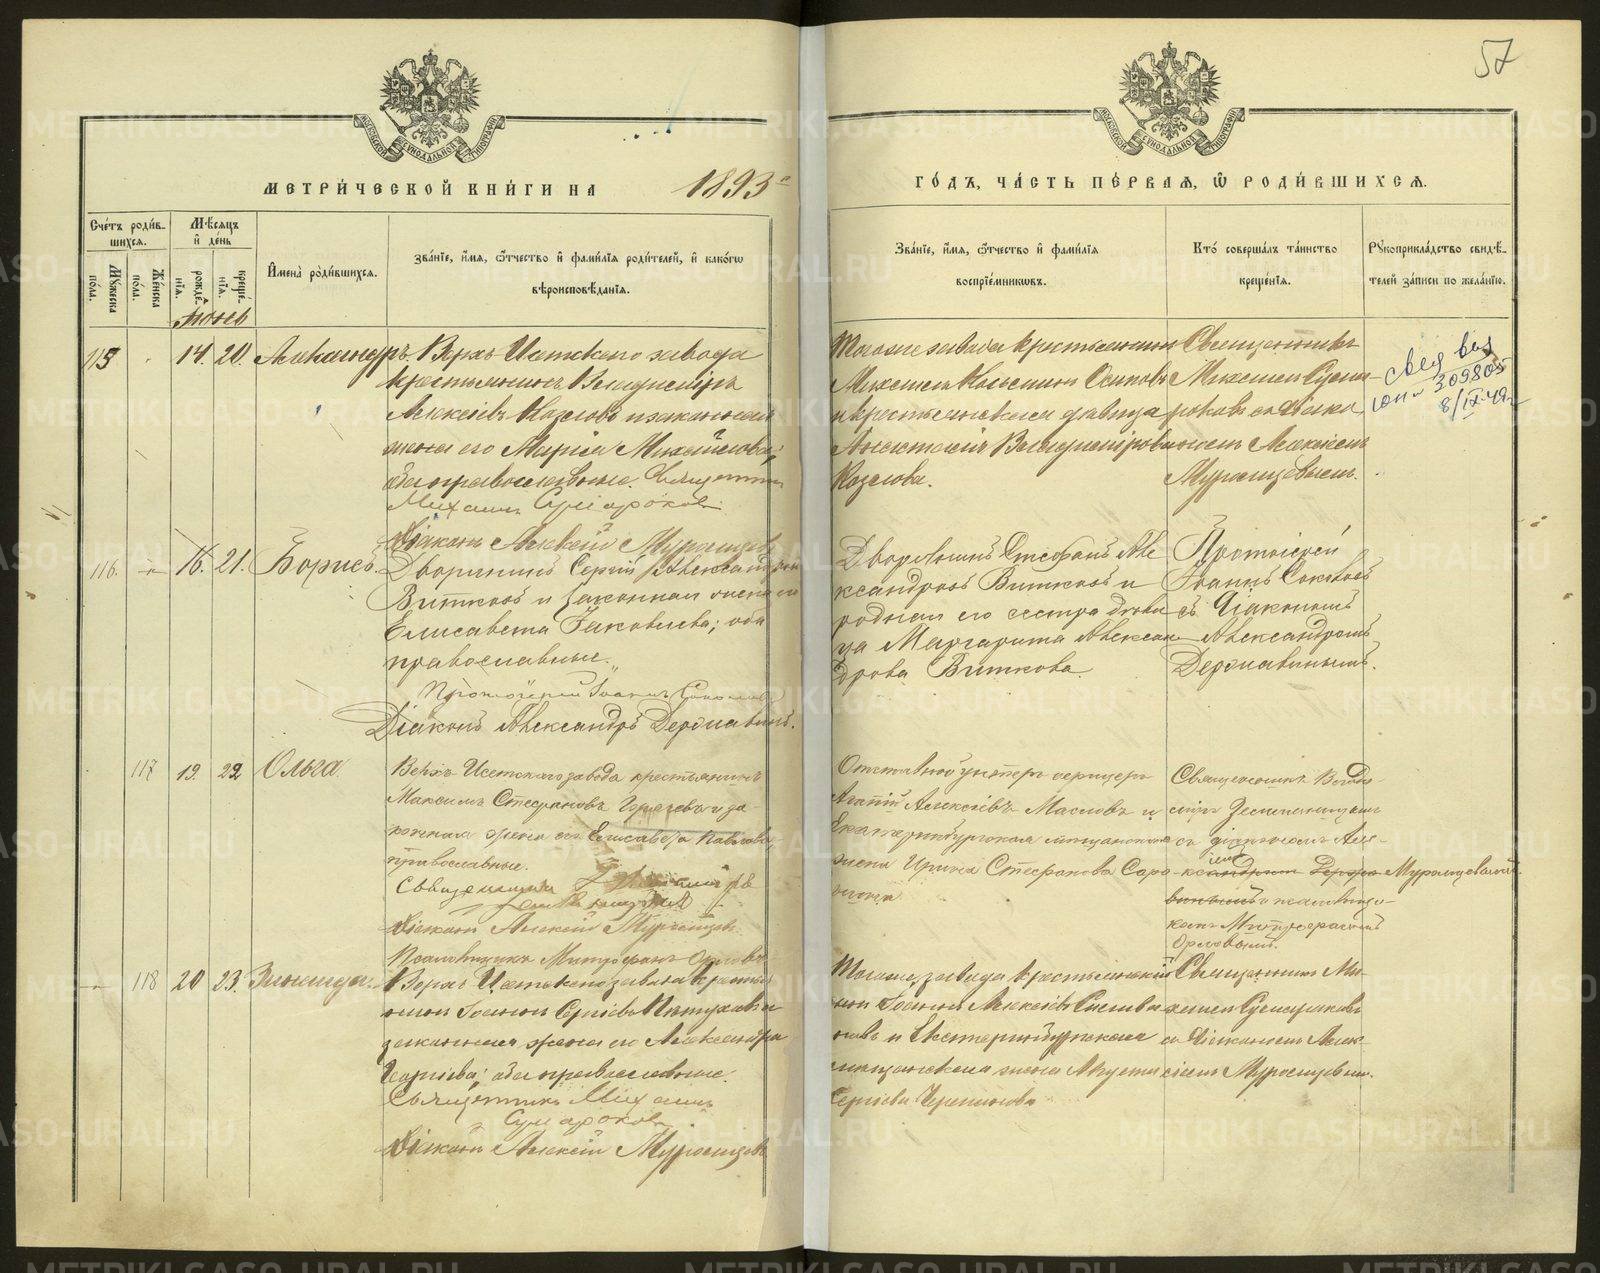 57
МЕТРИ́ЧЕСКОЙ КНИ́ГИ НА 1893 ГО́ДЪ, ЧА́СТЬ ПЕ́РВАЯ, Ѿ РОДИ́ВШИХСЯ.
Сче́тъ роди́в-
шихся.
Му́жеска по́ла.
Же́нска по́ла.
Мѣ́сяцъ и де́нь
рожде́нія.
креще́нія.
Имена̀ роди́вшихся.
Зва́ніе, и́мя, ѻ́тчество и фами́лія роди́телей, и како́гѡ
вѣроисповѣ́данія.
Зва́ніе, и́мя, ѻ́тчество и фами́лія
воспріе́мниковъ.
Кто̀ соверша́лъ та́инство
креще́нія.
Рукоприкла́дство свидѣ́-
телей за́писи по жела́нію.
Іюнь
115 14. 20. Александръ.
Верхъ-Исетскаго завода
крестьянинъ Владиміръ
Алексіевъ Козловъ и законная
жена его Марія Михайлова;
оба православные. Священникъ
Михаилъ Сумароковъ
Діаконъ Алексій Мурашцевъ
Тогоже завода крестьянинъ
Михаилъ Косьминъ Осиповъ
и крестьянская девица
Анастасія Владимірова
Козлова.
Священникъ
Михаилъ Сума-
роковъ съ діако-
номъ Алексіемъ
309805
8/IX 49
116. 16. 21. Борисъ.
Дворянинъ Сергій Александровъ
Витковъ и законная жена его
Елисавета Іаковлева; оба
православные.
Протоіерей Іоаннъ Соколовъ
Діаконъ Александръ Державинъ.
Дворянинъ Стефанъ Але
ксандровъ Витковъ и
родная его сестра девица
Маргарита Алексан
дрова Виткова.
Протоіерей
Іоаннъ Соколовъ
съ Діакономъ
Александромъ
Державинымъ.
117 19. 22 Ольга.
Верхъ-Исетскаго завода крестьянинъ
Максимъ Стефановъ и за-
конная жена его Елисавета Павлова,
православные.
Священникъ
Діаконъ Алексій
Псаломщикъ Митрофанъ Орловъ
Отставной унтеръ-офицеръ
Агапій Алексіевъ Масловъ и
Екатеринбургская мещанская
жена Ирина Стефанова
Священникъ Влади-
міръ Земляницынъ
съ діакономъ Але-
ксіемъ
и псаломщи-
комъ Митрофаномъ
Орловымъ.
118 20 23. Зинаида.
Верхъ-Исетскаго завода крестья-
нинъ Іоаннъ Сергіевъ Пѣтуховъ и
законная жена его Александра
оба православные.
Священникъ Михаилъ
Сумароковъ
Діаконъ Алексій
Тогоже завода крестьянскій
сынъ Іоаннъ Алексіевъ
и Екатеринбургская
мещанская жена
Сергіева Черепанова
Священникъ Ми-
хаилъ Сумароковъ
съ Діакономъ Алек-
сіемъ